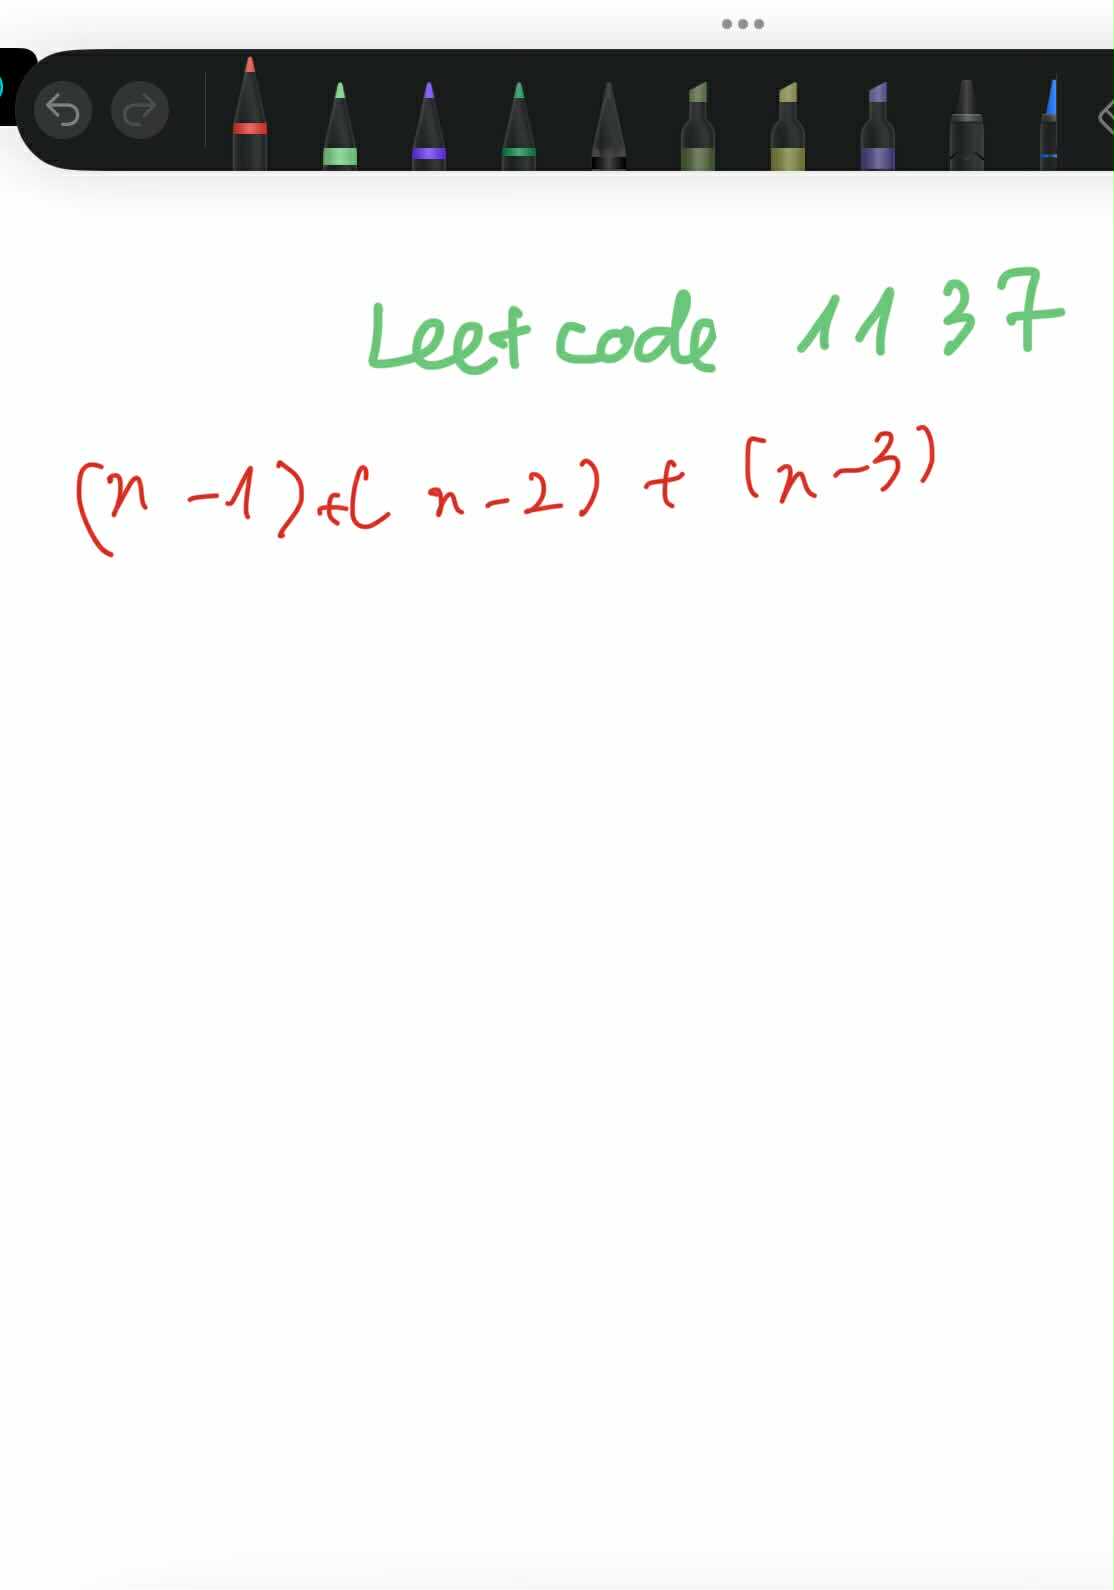 Leetcode 1137
(n - 1) + ( n - 2) + (n - 3)